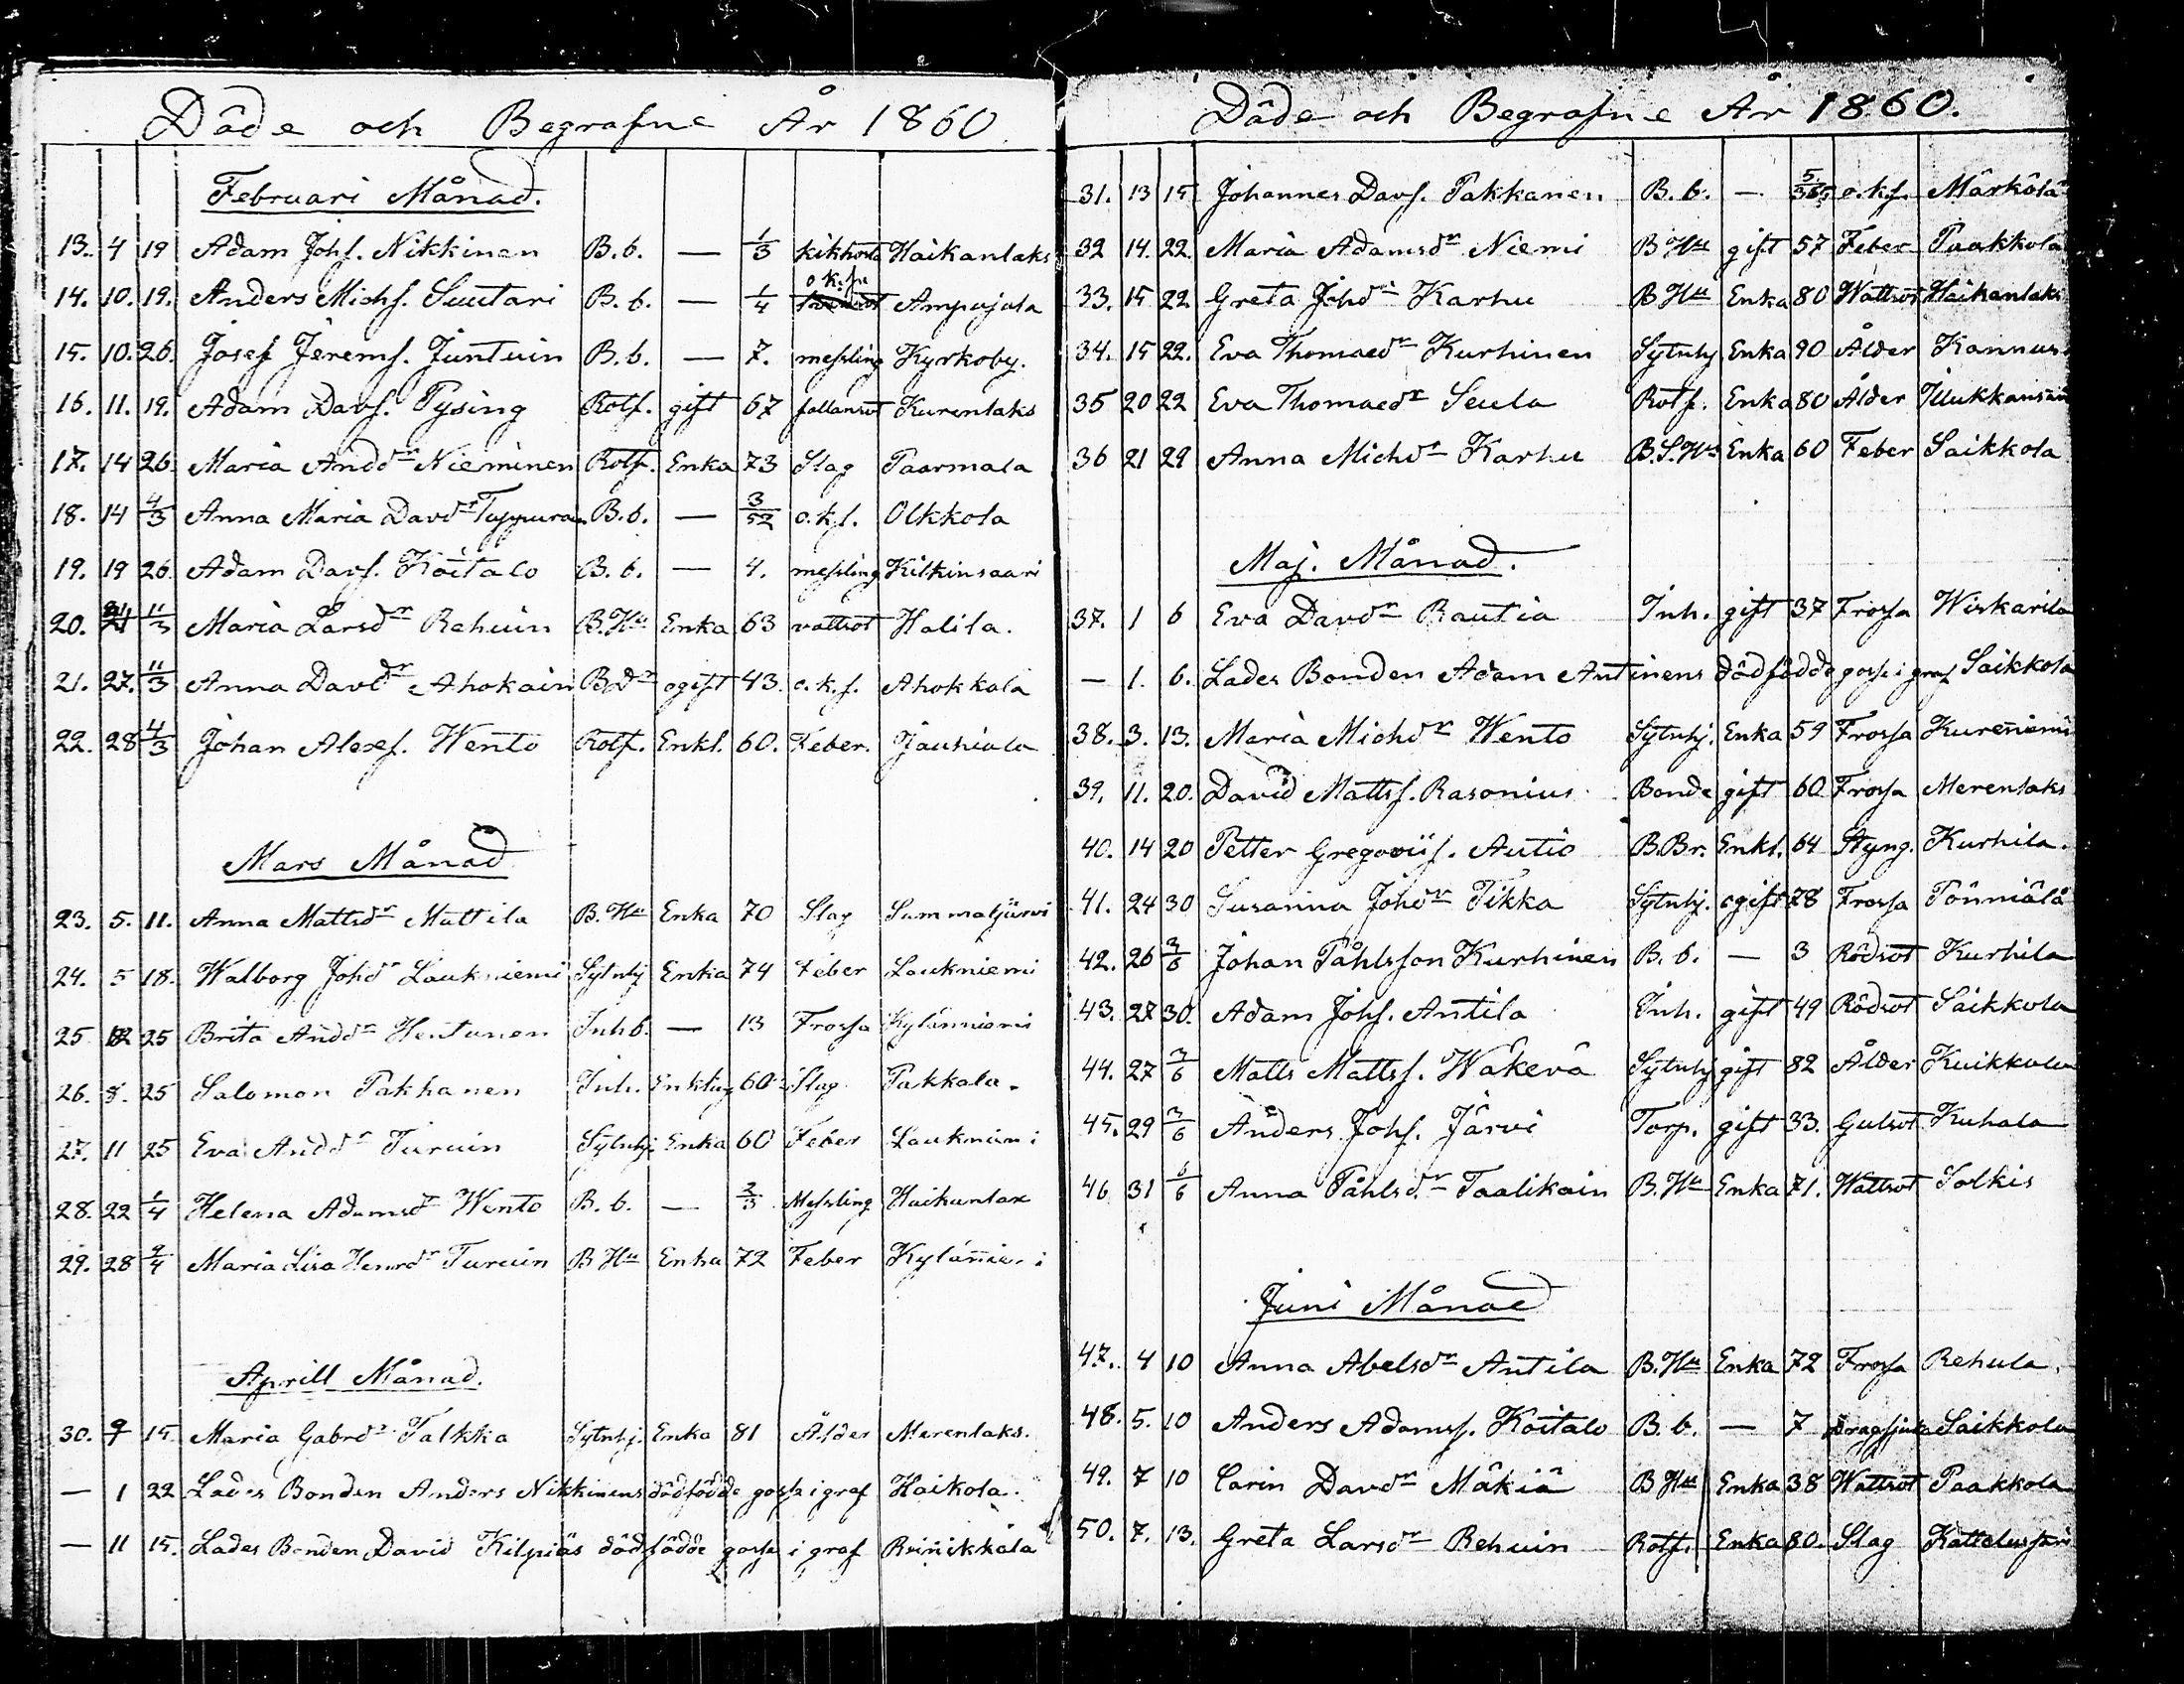 Döde och Begrafne År 1860
Februari Månad.
13. 4 19 Adam Johs. Nikkinen B.b. — 1/3 kikhosta Haikanlaks
14. 10. 19. Anders Michs. Suutari B.b. — 1/4 o.k.sn Ampujala
15. 10. 26. Josef Jerems. Juntuin B.b. — 7. messling Kyrkoby.
16. 11. 19. Adam Davs. Pysing Rotf. gift 67 fallansot Kurenlaks
17. 14 26. Maria Andd:r Nieminen Rotf. Enka 73 Slag Paarmala
18. 14 4/3 Anna Maria Davd:r B.b. — 3/52 o.k.s. Olkkola
19. 19 26. Adam Davs. Koitalo B.b. — 4. messling Kilkinsaari
20. 11/3 Maria Larsd:r Rehuin B.Hu Enka 63 vattsot Halila.
21. 27. 11/3 Anna Davd:r Ahokain B.Dr ogift 43. o.k.s. Ahokkala
22. 28 4/3 Johan Alexs. Wento Rotf. Enkl. 60. Feber. Jauhiala
Mars Månad
23. 5. 11. Anna Mattsd:r Mattila B.Hu Enka 70 Slag Summatjärvi
24. 5 18. Walborg Johd:r Laukniemi Sytnhj Enka 74 Feber Laukniemi
25 12 25 Brita Andd:r Hentunen Inhb. — 13 Frossa Kylänniemi
26. 8. 25 Salomon Pakkanen Inh. Enkling 60 Slag Pakkala.
27. 11 25 Eva Andd:r Turuin Sytnhj. Enka 60 Feber Laukniemi
28. 22 1/4 Helena Adamsd:r Wento B.b. — 2/3 Messling Haikanlax
29. 28 9/4 Maria Lisa Henrd:r Turuin B.Hu Enka 72 Feber Kylänniemi
Aprill Månad.
30. 9 15. Maria Gabrd:r Talkka Sytnhj. Enka 81 Ålder Merenlaks.
— 1 22 Lades Bonden Anders Nikkinens dödfödde gosse i graf Haikola.
— 11 15. Lades Bonden David Kilpiäs dödfödde gosse i graf Reinikkala
Döde och Begrafne År 1860.
31. 13 15 Johannes Davs. Pakkanen B.b. — 5/365 o.k.s. Märkölä
32 14. 22. Maria Adamsd:r Niemi B.Hu gift 57 Feber Paakkola
33. 15 22 Greta Johd:r Karhu B Hu Enka 80 Wattsot Haikanlaks
34. 15 22. Eva Thomaed:r Kurhinen Sytnhj Enka 90 Ålder Kannus.
35 20 22 Eva Thomaed:r Seula Rotf. Enka 80 Ålder
36 21 29 Anna Michd:r Karhu B.S.Hu Enka 60 Feber Saikkola
Maj. Månad.
37. 1 6 Eva Davd:r Rautia Inh. gift 37 Frossa Wiskarila
— 1. 6. Lades Bonden Adam Antinens dödfödde gosse i graf Saikkola
38. 3. 13. Maria Michd:r Wento Sytnhj. Enka 59 Frossa Kureniemi
39. 11. 20. David Mattss. Rasonius Bonde gift 60 Frossa Merenlaks
40. 14 20 Petter Gregoriis. Autio B.Br. Enkl. 64 Styng. Kurhila.
41. 24 30 Susanna Johd:r Tikka Sytnhj. ogift 78 Frossa Pönniälä
42. 26 3/6 Johan Påhlsson Kurhinen B.b. — 3 Rödsot Kurhila
43. 27 30. Adam Johs. Antila Inh. gift 49 Rödsot Saikkola
44. 27 3/6 Matts Mattss. Wäkevä Sytnhj gift 82 Ålder Kuikkola
45. 29 3/6 Anders Johs. Järvi Torp. gift 33. Gulsot Kuhala
46 31 6/6 Anna Påhlsd:r Taalikain B.Hu Enka 71. Wattsot Solkis
Juni Månad
47. 4 10 Anna Abelsd:r Antila B.Hu Enka 72 Frossa Rehula.
48. 5. 10 Anders Adamss. Koitalo B.b. — 7 Dragsjuka Saikkola
49. 7 10 Carin Davd:r Mäkiä B Hu Enka 38 Wattsot Paakkola
50. 7. 13. Greta Larsd:r Rehuin Rotf. Enka 80. Slag Kattelussari